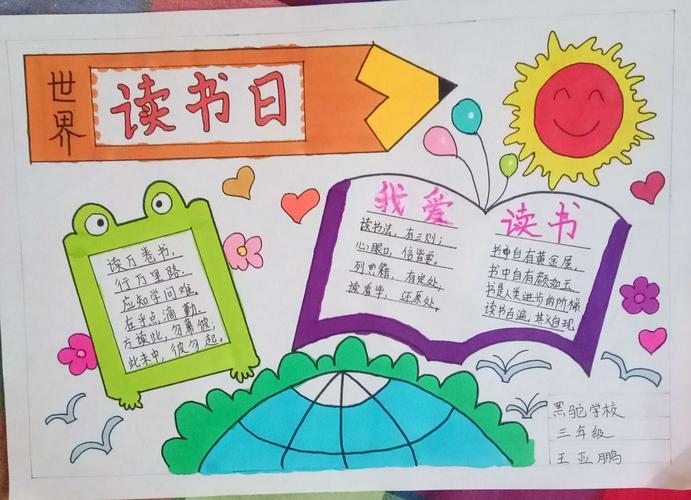 世界
读书日
读万卷书,
行万里路.
应知学问难,
在乎点滴勤.
方读此,勿慕彼;
此未中,彼勿起。
我爱
读书法,有三则;
心眼口,信皆要。
列典籍,有定处,
读看毕,还原处。
读书
书中自有黄金屋,
书中自有颜如玉
书是人类进步的阶梯
读书百遍,其义自现
黑驼学校
三年级
王亚鹏